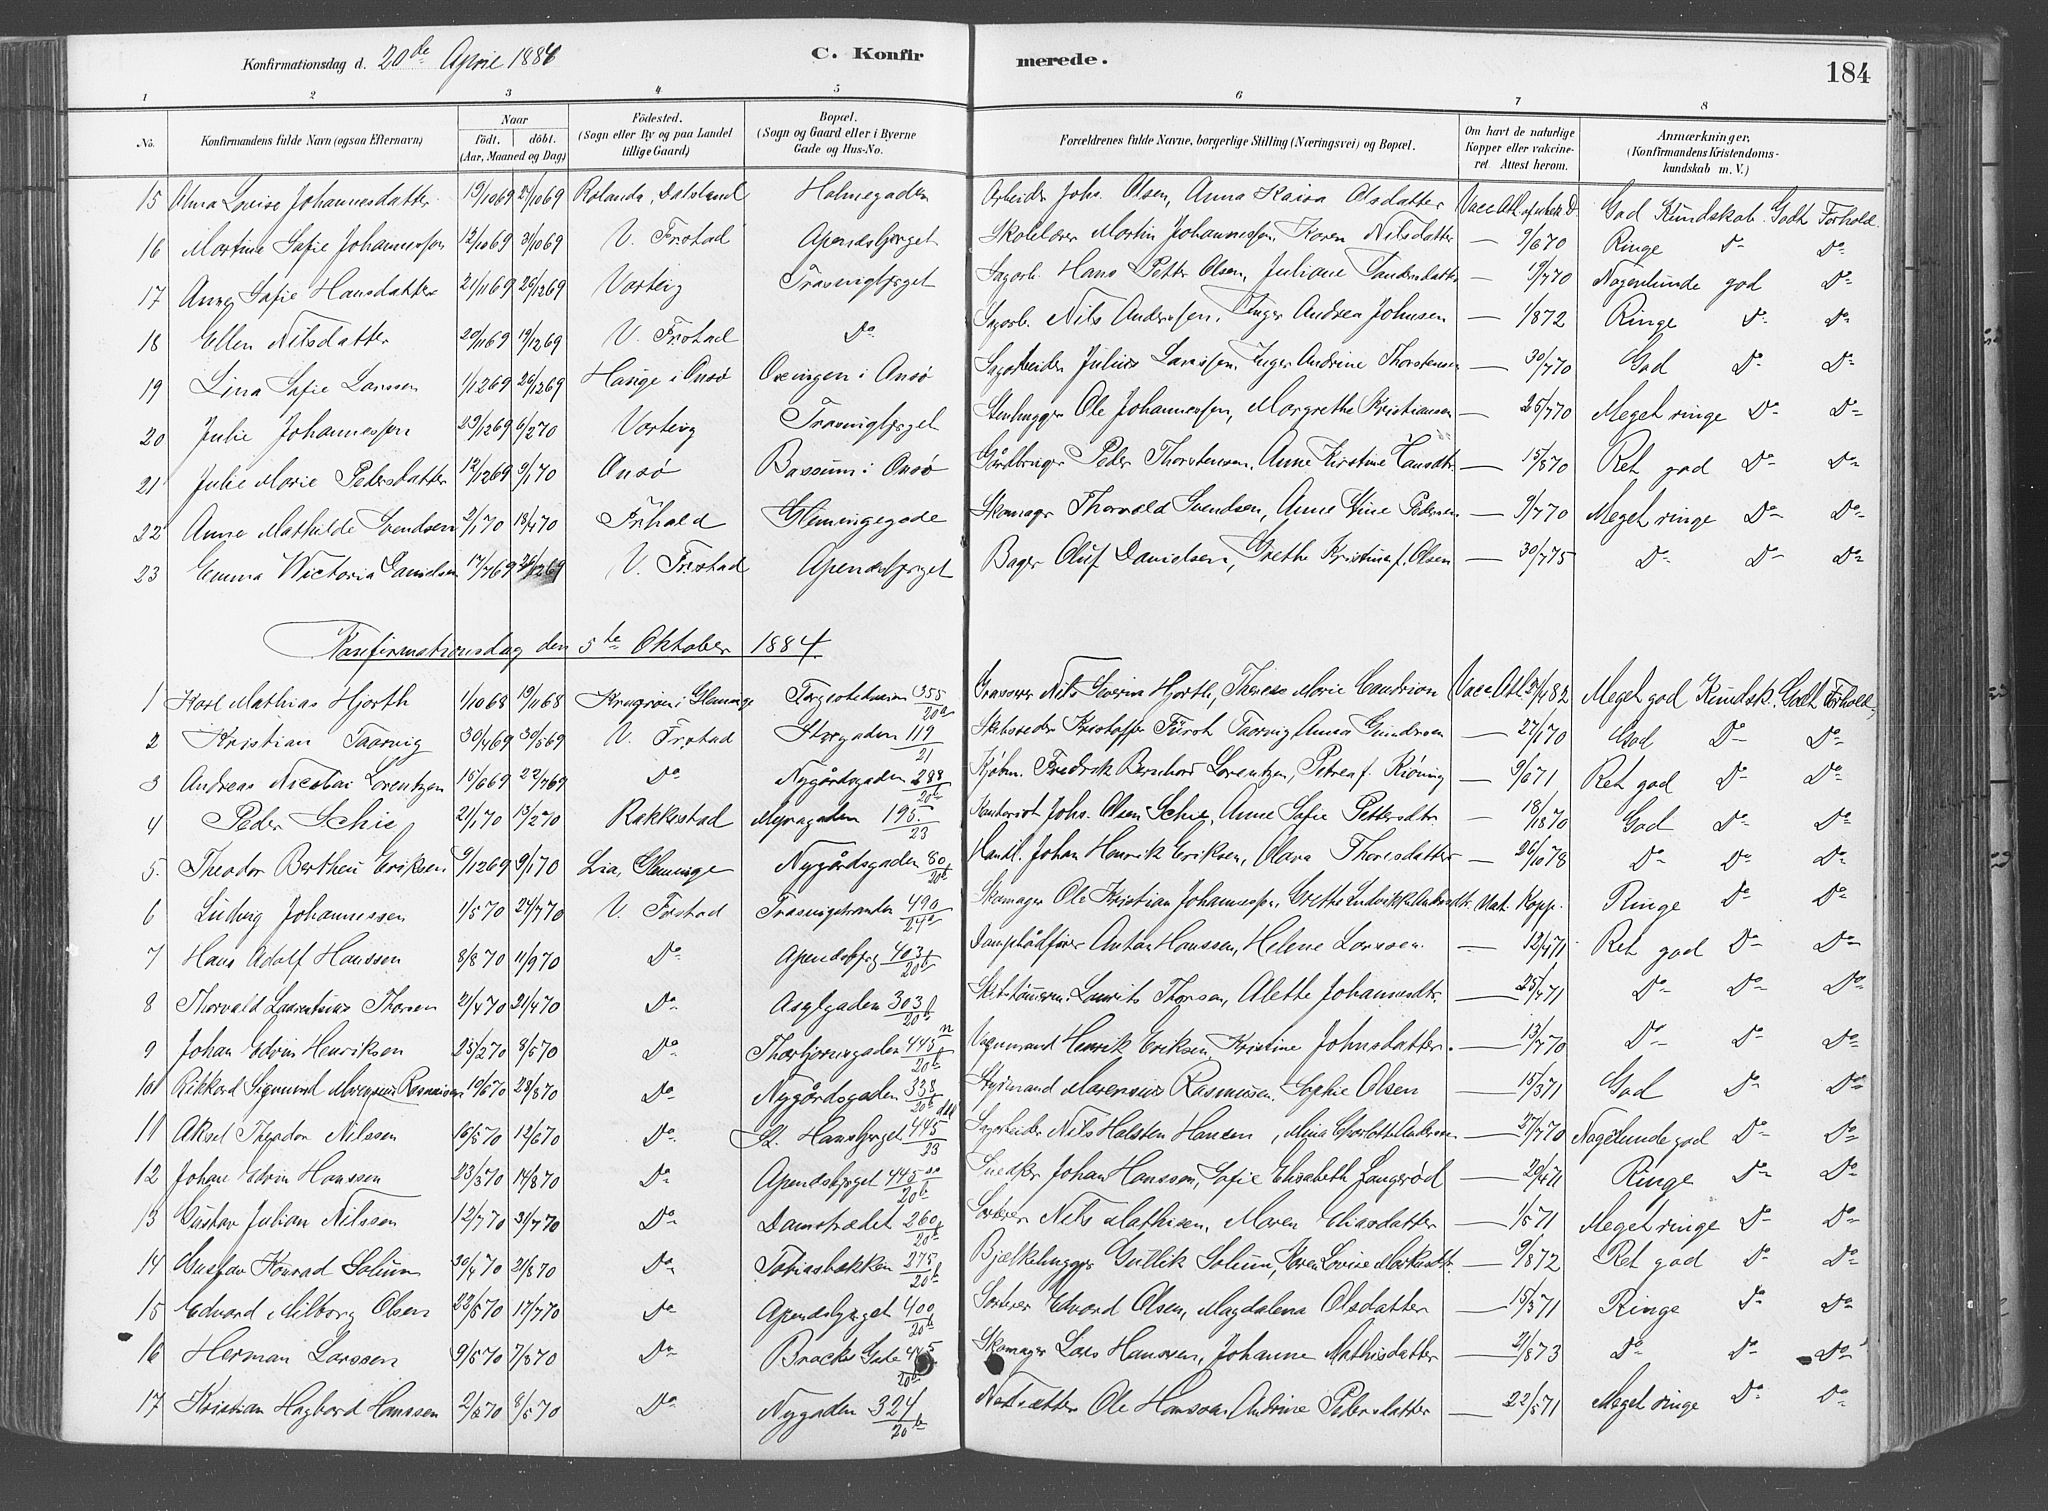 Konfirmationsdag d. 20de April 1884
C. Konfirmerede.
184
1 2 3 4 5 6 7 8
No. Konfirmandens fulde Navn (ogsaa Efternavn) Naar födt. döbt. (Aar, Maaned og Dag) Födested. (Sogn eller By og paa Landet tillige Gaard) Bopæl. (Sogn og Gaard eller i Byerne Gade og Hus-No. Forældrenes fulde Navne, borgerlige Stilling (Næringsvei) og Bopæl. Om havt de naturlige Kopper eller vakcineret Attest herom. Anmærkninger, (Konfirmandens Kristendomskundskab m. V.)
15 Alma Lovise Johannesdatter 19/10 69 Dalsland Holmegaden Arbeider Johs. Olsen, Anna Kaisa Olsdatter Vacc. Att. God Kundskab. Godt Forhold.
16 Martine Sofie Johannessen 12/10 69 31/10 69 V. Frstad Apenæsbjerget Skolelærer Martin Johannessen, Karen Nilsdatter — 9/6 70 Ringe Do Do
17 Anne Sofie Hansdatter 21/11 69 26/12 69 Varteig Trosvigbjerget Sagarb. Hans Petter Olsen, Juliane — 19/7 70 Nogenlunde god Do
18 Ellen Nilsdatter 20/11 69 19/12 69 V. Frstad Do Sagarb. Nils Andersen, Inger Andrea Johnsen — 1/8 72 Ringe Do Do
19 Lina Sofie Larssen 1/12 69 26/12 69 Hauge i Onsø Oxeingen i Onsø Sagarbeider Julius Larssen, Inger Andrine Thorstensen — 30/7 70 God Do Do
20 Julie Johannessen 29/12 69 6/2 70 Varteig Trosvigbjerget Stenhugger Ole Johannessen, Margrethe Kristiansen — 25/7 70 Meget ringe Do Do
21 Julie Marie Pedersdatter 12/12 69 9/1 70 Onsø i Onsø Gårdbruger Peder Thorstensen, Anne Kirstine Hansdtr — 15/8 70 Ret god Do Do
22 Anne Mathilde Svendsen 2/1 70 18/4 70 Frhald Glemmingegade Skomager Thorvald Svendsen, Anne Stine Pedersen — 9/7 70 Meget ringe Do Do
23 Emma Victoria Danielsen 17/7 69 26/12 69 V. Frstad Apenæsbjerget Bager Oluf Danielsen, Grethe Kristine f. Olsen — 30/7 75 Do Do Do
Konfirmationsdag den 5te Oktober 1884
1 Karl Mathias Hjorth 1/10 68 19/11 68 i Glemminge 355/20a Nils Severin Hjorth, Therese Marie Vacc. Att. Meget god Kundsk. Godt Forhold
2 Kristian Taarvig 30/4 69 30/5 69 V. Frstad Storgaden 119/21 Skibsreder Kristoffer Fürst Taarvig, Anna Gundersen — 27/1 70 God Do Do
3 Andreas Nicolai Lorentzen 15/6 69 22/7 69 Do Nygårdsgaden 288/20b Kjøbm. Fredrik Bernhard Lorentzen, Petrea f. Kiøning — 9/6 71 Ret god Do Do
4 Peder Schie 21/1 70 13/2 70 Rakkestad Myragaden 195/23 Kontorist Johs. Olsen Schie, Anne Sofie Pettersdtr. — 18/11 70 God Do Do
5. Theodor Bertheu Eriksen 9/12 69 9/1 70 Lia, Glemminge Nygårdsgaden 80/20b Handl. Johan Henrik Eriksen, Olava Thorisdatter — 26/10 78 Do Do Do
6 Ludvig Johannessen 1/5 70 24/7 70 V. Frstad Trosvigstranden 490/21a Skomager Ole Kristian Johannessen, Grethe Nat. Kopp. Ringe Do Do
7 Hans Adolf Hanssen 8/8 70 11/9 70 Do Apenæsbjerg 403/20b Dampbådfører Anton Hanssen, Helene Larssen — 12/4 71 Ret god Do Do
8 Thorvald Laurentius Thorsen 21/4 70 21/4 70 Do Asylgaden 303/20b Skibstømmerm. Laurits Thorsen, Alette Johannesdtr. — 25/4 71 Do Do Do
9 Johan Edvin Henriksen 25/2 70 8/5 70 Do Thorbjornsgaden 445n/20b Vognmand Henrik Eriksen, Kristine Johnsdatter — 13/7 70 Do Do Do
10 Rikkard Sigmund Morensius Rasmussen 19/6 70 28/8 70 Do Nygårdsgaden 338/20b Styrmand Morensius Rasmussen, Sophie Olsen — 15/3 71 God Do Do
11 Aksel Theodor Nilssen 16/5 70 12/6 70 Do St. Hansbjerget 445/23 Sagarbeider Nils Halsten Hansen, Mina Charlotte Andersen — 27/7 70 Nogenlunde god Do Do
12 Johan Edvin Hanssen 23/3 70 14/8 70 Do Apenæsbjerget 445/20b Snedker Johan Hanssen, Sofie Elisabeth Langerød — 20/4 71 Ringe Do Do
13 Gustav Julian Nilssen 12/7 70 31/7 70 Do Damstrædet 260/20b Sorterer Nils Mathisen, Maren Eliasdatter — 1/5 71 Meget ringe Do Do
14 Gustav Konrad Solum 30/4 70 21/8 70 Do Tobiasbakken 275/20b Bjælkehugger Gullik Solum, Karen Lovise Markusdtr. — 9/8 72 Ret god Do Do
15 Edvard Milborg Olsen 22/5 70 17/7 70 Do Apenæsbjerget 400/20b Sorterer Edvard Olsen, Magdalena Olsdatter — 15/3 71 Ringe Do Do
16 Herman Larssen 9/5 70 7/8 70 Do Brocks Gate 445/20b Skomager Lars Hanssen, Johanne Mathisdatter — 21/8 73 Do Do Do
17 Kristian Hagbard Hanssen 2/2 70 8/5 70 Do Nygaden 324/20b Ole Hanssen, Andrine Pedersdatter — 22/5 71 Meget ringe Do Do